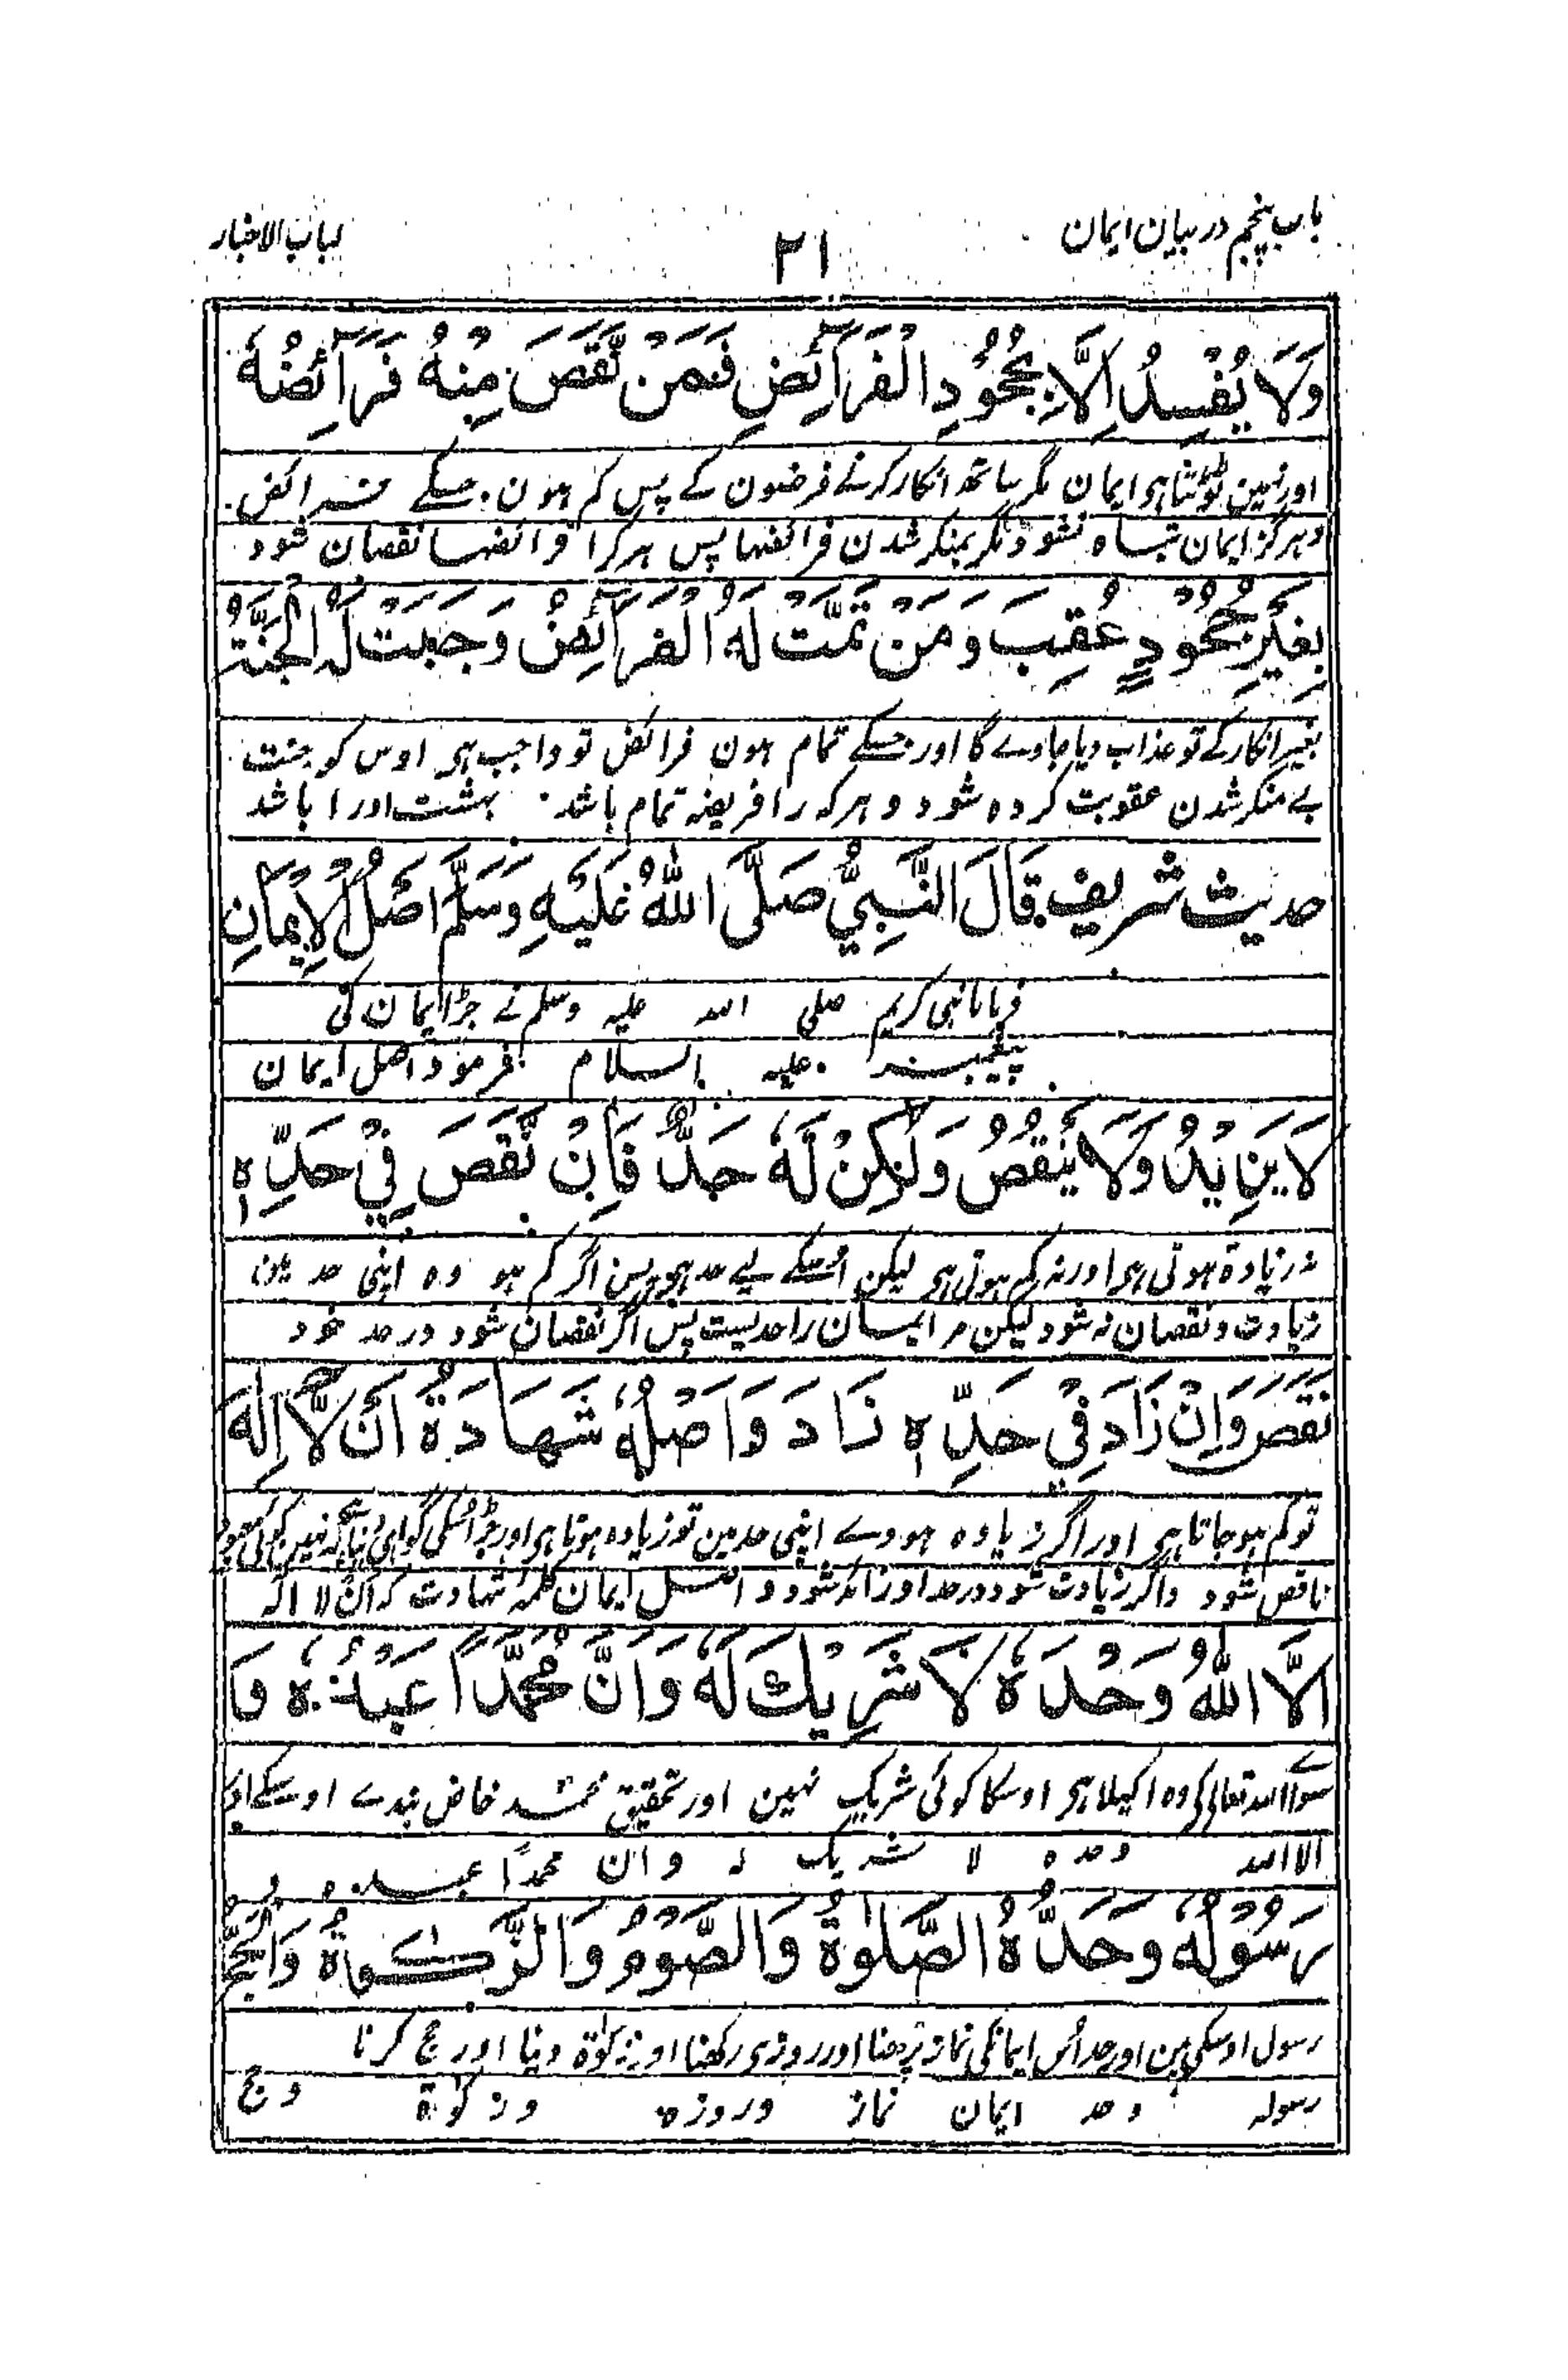 باب پنجم در بیان ایمان
۲۱
لباب الاخبار
وَلَا يُفْسِدُ اِلَّا بِجُحُوْدِ الْفَرَآئِضِ فَمَنْ نَّقَصَ مِنْهُ فَرَآئِضُهٗ
اور نہین ٹوٹتا ہی ایمان مگر ساتھ انکار کرنے فرضون کے پس کم ہون جسکے فرائض
و ہرگز ایمان تباہ نشود مگر بمنکر شدن فرائضہا پس ہر کرا فرائضہا نقصان شود
بِغَيْرِ جُحُوْدٍ عُقِبَ وَمَنْ تَمَّتْ لَهُ الْفَرَآئِضُ وَجَبَتْ لَهُ الْجَنَّةُ
بغیر انکار کے تو عذاب دیا جاوے گا اور جسکے تمام ہون فرائض تو واجب ہی اوس کو جنت
بے منکر شدن عقوبت کردہ شود و ہر کہ را فریضہ تمام باشد بہشت اورا باشد
حدیث شریف قَالَ النَّبِيُّ صَلَّى اللّٰهُ عَلَيْهِ وَسَلَّمَ اَصْلُ الْاِيْمَانِ
فرمایا نبی کریم صلی اللہ علیہ وسلم نے جڑ ایمان کی
پیغمبر علیہ السلام فرمود اصل ایمان
لَا يَزِيْدُ وَلَا يَنْقُصُ وَلٰكِنْ لَهٗ حَدٌّ فَاِنْ نَقَصَ فِيْ حَدِّهٖ
نہ زیادۃ ہوتی ہی اور نہ کم ہوتی ہی لیکن اوسکے لیے حد ہی پس اگر کم ہو وہ اپنی حد مین
زیادت و نقصان نہ شود لیکن مر ایمان را حدیست پس اگر نقصان شود در حد خود
نَقَصَ وَاِنْ زَادَ فِيْ حَدِّهٖ زَادَ وَاَصْلُهٗ شَهَادَةُ اَنْ لَّا اِلٰهَ
تو کم ہو جاتا ہی اور اگر زیادہ ہووے اپنی حد مین تو زیادہ ہوتا ہی اور جڑ اسکی گواہی دینا ہی کہ نہین کوئی معبود
ناقص شود و اگر زیادت شود در حد او زائد شود و اصل ایمان کلمۂ شہادت کہ ان لا الہ
اِلَّا اللّٰهُ وَحْدَهٗ لَا شَرِيْكَ لَهٗ وَاَنَّ مُحَمَّدًا عَبْدُهٗ وَ
سواے اللہ تعالی کی وہ اکیلا ہی اوسکا کوئی شریک نہین اور تحقیق محمد خاص بندے اوسکے اور
الا اللہ وحدہ لا شریک لہ و ان محمدًا عبدہ و
رَسُوْلُهٗ وَحَدُّهُ الصَّلٰوةُ وَالصَّوْمُ وَالزَّكٰوةُ وَالْحَجُّ
رسول اوسکی ہین اور حد اُس ایمانکی نماز پڑھنا اور روزہ رکھنا اور زکوٰۃ دینا اور حج کرنا
رسولہ و حد ایمان نماز و روزہ و زکوٰۃ و حج